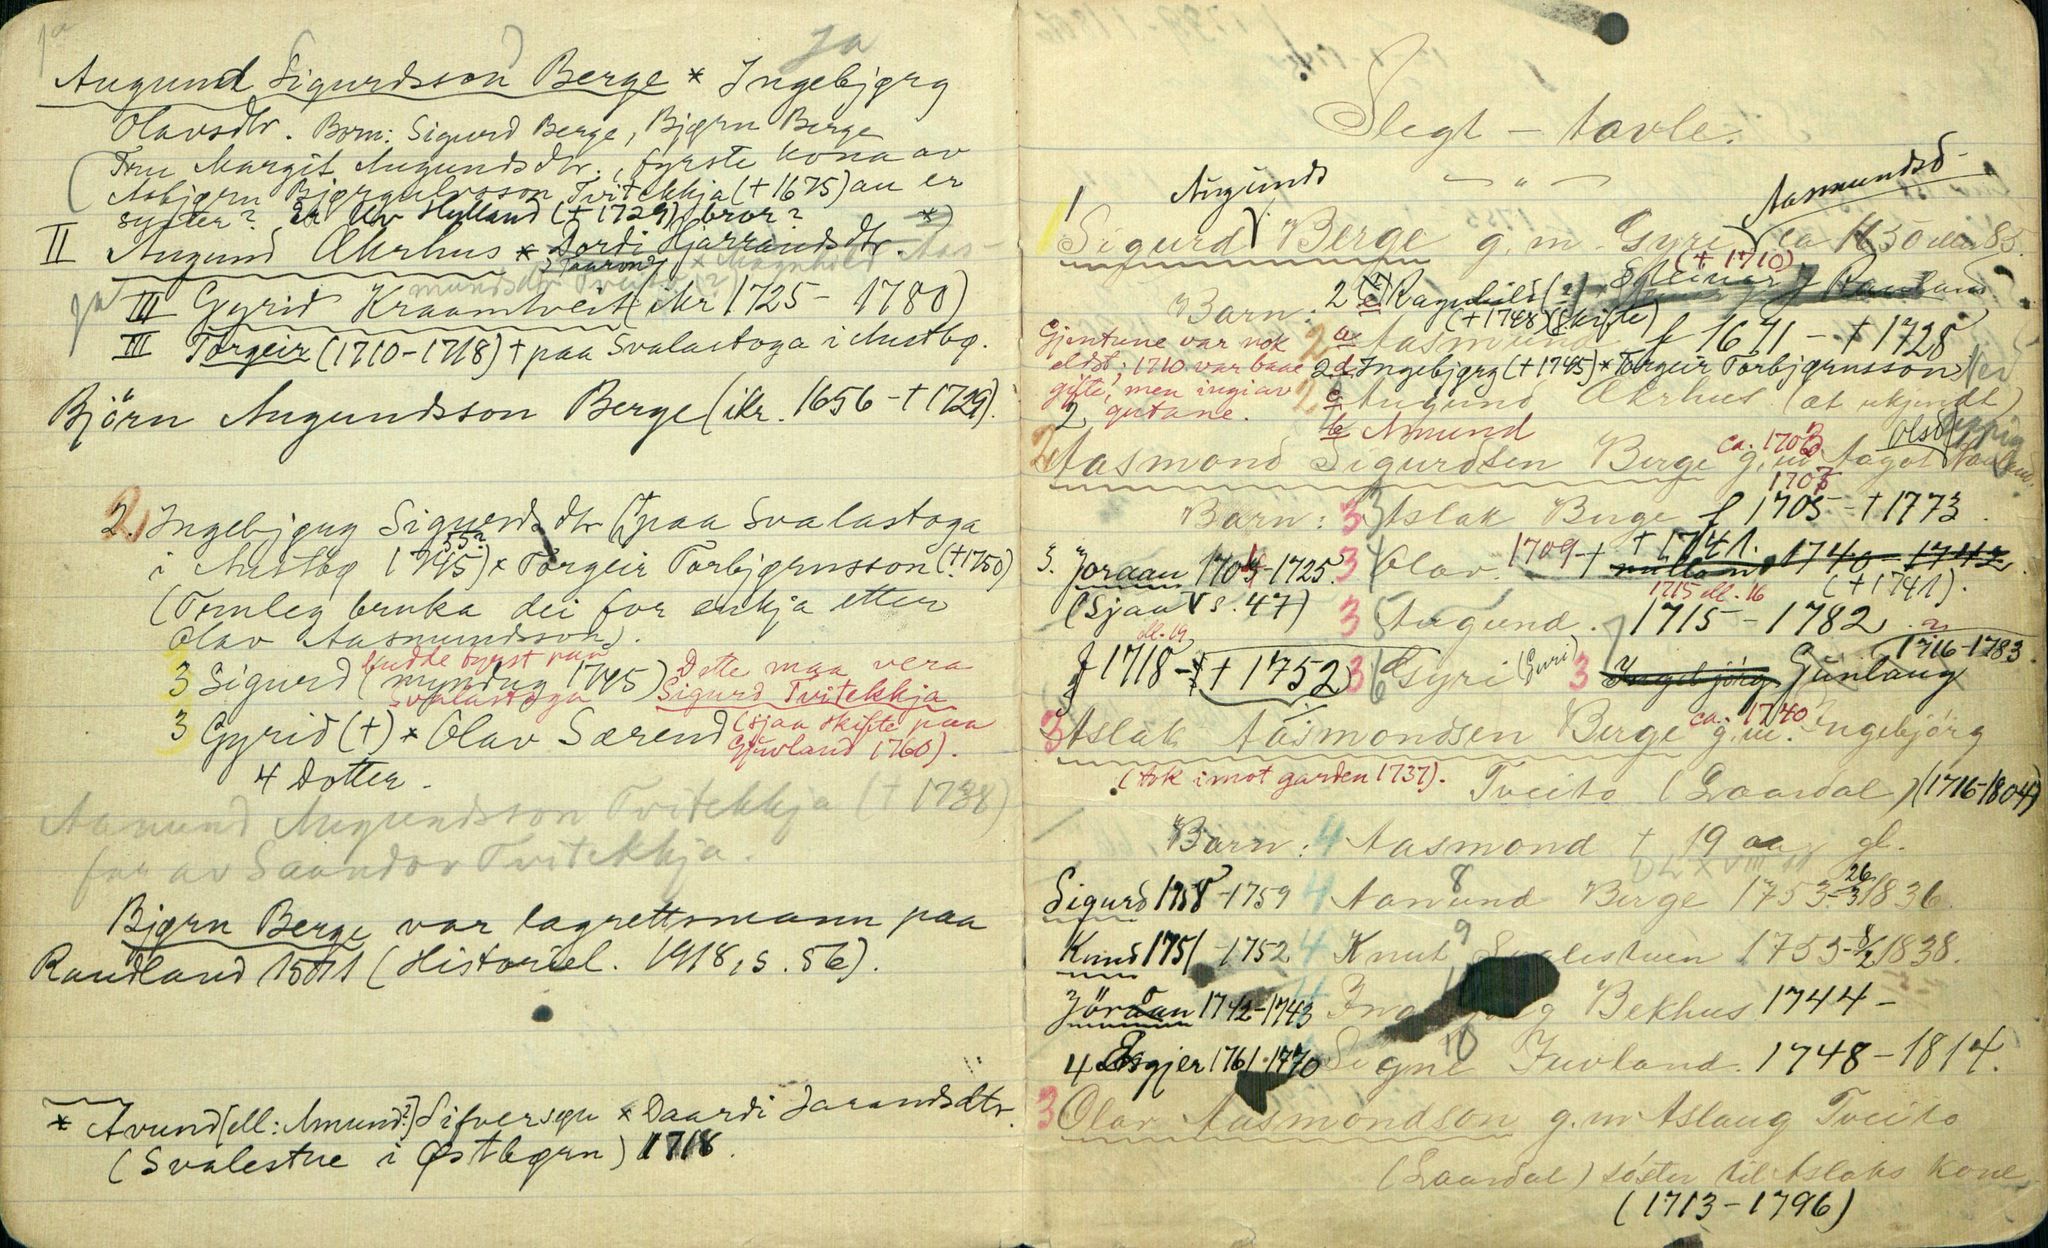 ja
Augund Sigurdsson Berge * Ingebjørg
Olavsdtr. Born: Sigurd Berge, Bjørn Berge
(Tru Margit Augundsdtr., fyrste kona av
Asbjørn Bjørgulvsson Tvitekkja (+ 1675) au er
syster? Er Olv Hylland (+ 1729) bror?
II Augund Åkrhus * Dordi Hjarrandsdtr. *)
ja III Gyrid Kraamtveit (ikr 1725 - 1780)
III Torgeir (1710-1718) + paa Svalastoga i Austbg.
Björn Augundsson Berge (ikr. 1656 - + 1729).
2. Ingebjørg Sigurdsdtr (+ paa Svalastoga
i Austbg 1745) * Torgeir Torbjørnsson (+ 1750)
(Truleg bruka dei for enkja etter
Olav Aasmundsson).
3 Sigurd (myndug 1745) Dette maa vera
Svalastoga Sigurd Tvitekkja
3 Gyrid (+) * Olav Særend (sjaa skifte paa
Gjuvland 1760).
4 Dotter.
Aamund Augundsson Tvitekkja (+ 1738)
far av Saandor Tvitekkja.
Bjørn Berge var lagrettsmann paa
Raudland 1511 (Historiel. 1918, s. 56).
* Avund [ell: Amund?] Sifversøn * Daardi Jarandsdtr.
(Svalestue i Østbøgrn) 1718.
Slegt - tavle.
1 Augunds Aasmundsd
Sigurd Berge g. m. Gyri ca 1650 85.
(+ 1710)
Barn: 2 e Ragnhild Steinar J Rauland
(+ 1748) (skifte)
Gjentune var nok 2 a Aasmund f 1671 - + 1728
eldst; 1710 var baae 2 d Ingebjørg (+ 1745) * Torgeir Torbjørnsson
gifte, men ingi av 2 c Augund Åkrhus (æt ukjendt)
gutane. b Amund
2 Aasmond Sigurdsen Berge ca. 1703 g. m. Aagot Olsd
Barn: 3 Aslak Berge f 1705 - + 1773
3. Joraan 1709-1725 3 Olav 1709 - + 1741. 1740 - 1742
(Sjaa s. 47) 1715 ell. 16 (+ 1741).
3 Augund. 1715 - 1782
ell. 19
f 1718 - + 1752 3 Gyri (Guri) 3 Ingebjörg Gunlaug 1716-1783
3 Aslak Aasmondsen Berge ca. 1740 g. m. Ingebjörg
(tok imot garden 1737). Tveito (Laardal) (1716-1804)
Barn: 4 Aasmond + 19 aar gl.
Sigurd 1758-1759 4 Aamund Berge 1753-26/3 1836
Knud 1751-1752 4 Knut Svalestuen 1753-8/2 1838.
Jöraan 1742-1743 4 Bekhus 1744 -
4 Asgjer 1761-1770 Signe Juvland. 1748 - 1814.
3 Olav Aasmondson g. m Aslaug Tveito
(Laardal) söster til Aslaks kone
(1713 - 1796)